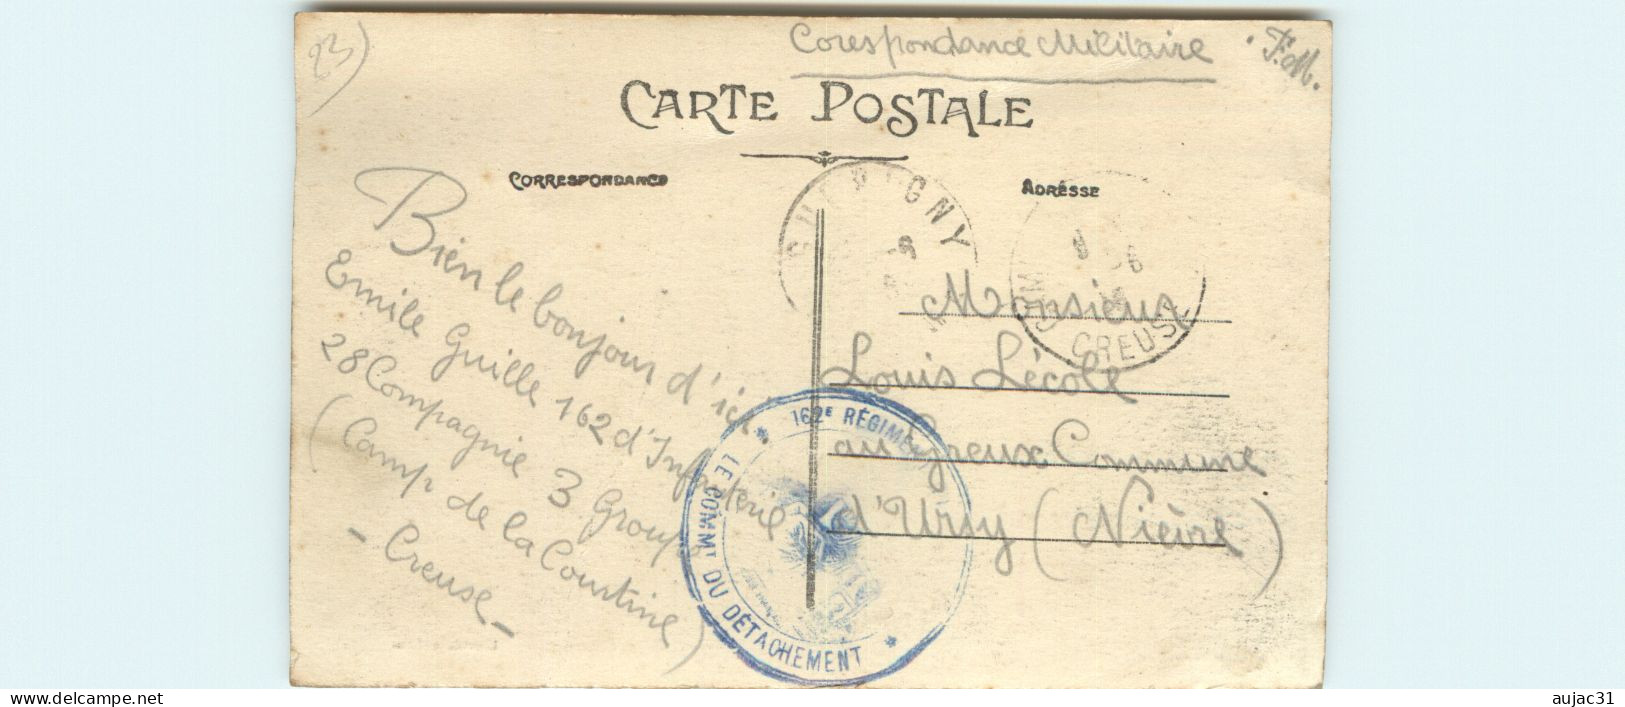 23)
Corespondance Militaire . F.M.
CARTE POSTALE
CORRESPONDANCE
ADRÉSSE
GUERIGNY
CREUSE
Bien le bonjour d'ici
Emile Guille 162 d'Infanterie
28 Compagnie 3 Group
(Camp de la Courtine)
- Creuse -
Monsieur
Louis Lécole
au Greux Commune
d'Urzy (Nièvre)
* 162E RÉGIMENT *
LE COMMT DU DÉTACHEMENT
www.delcampe.net
aujac31